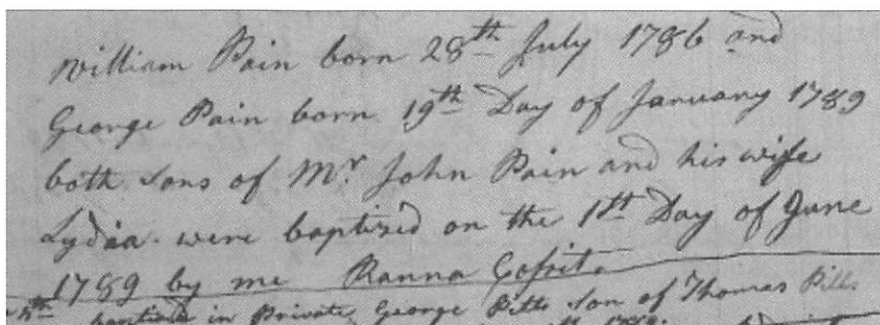 William Pain born 28th July 1786 and
George Pain born 19th Day of January 1789
both sons of Mr John Pain and his wife
Lydia were baptized on the 1th Day of June
1789 by me Ranna Cossit.
baptized in Private George Pitts Son of Thomas Pitts